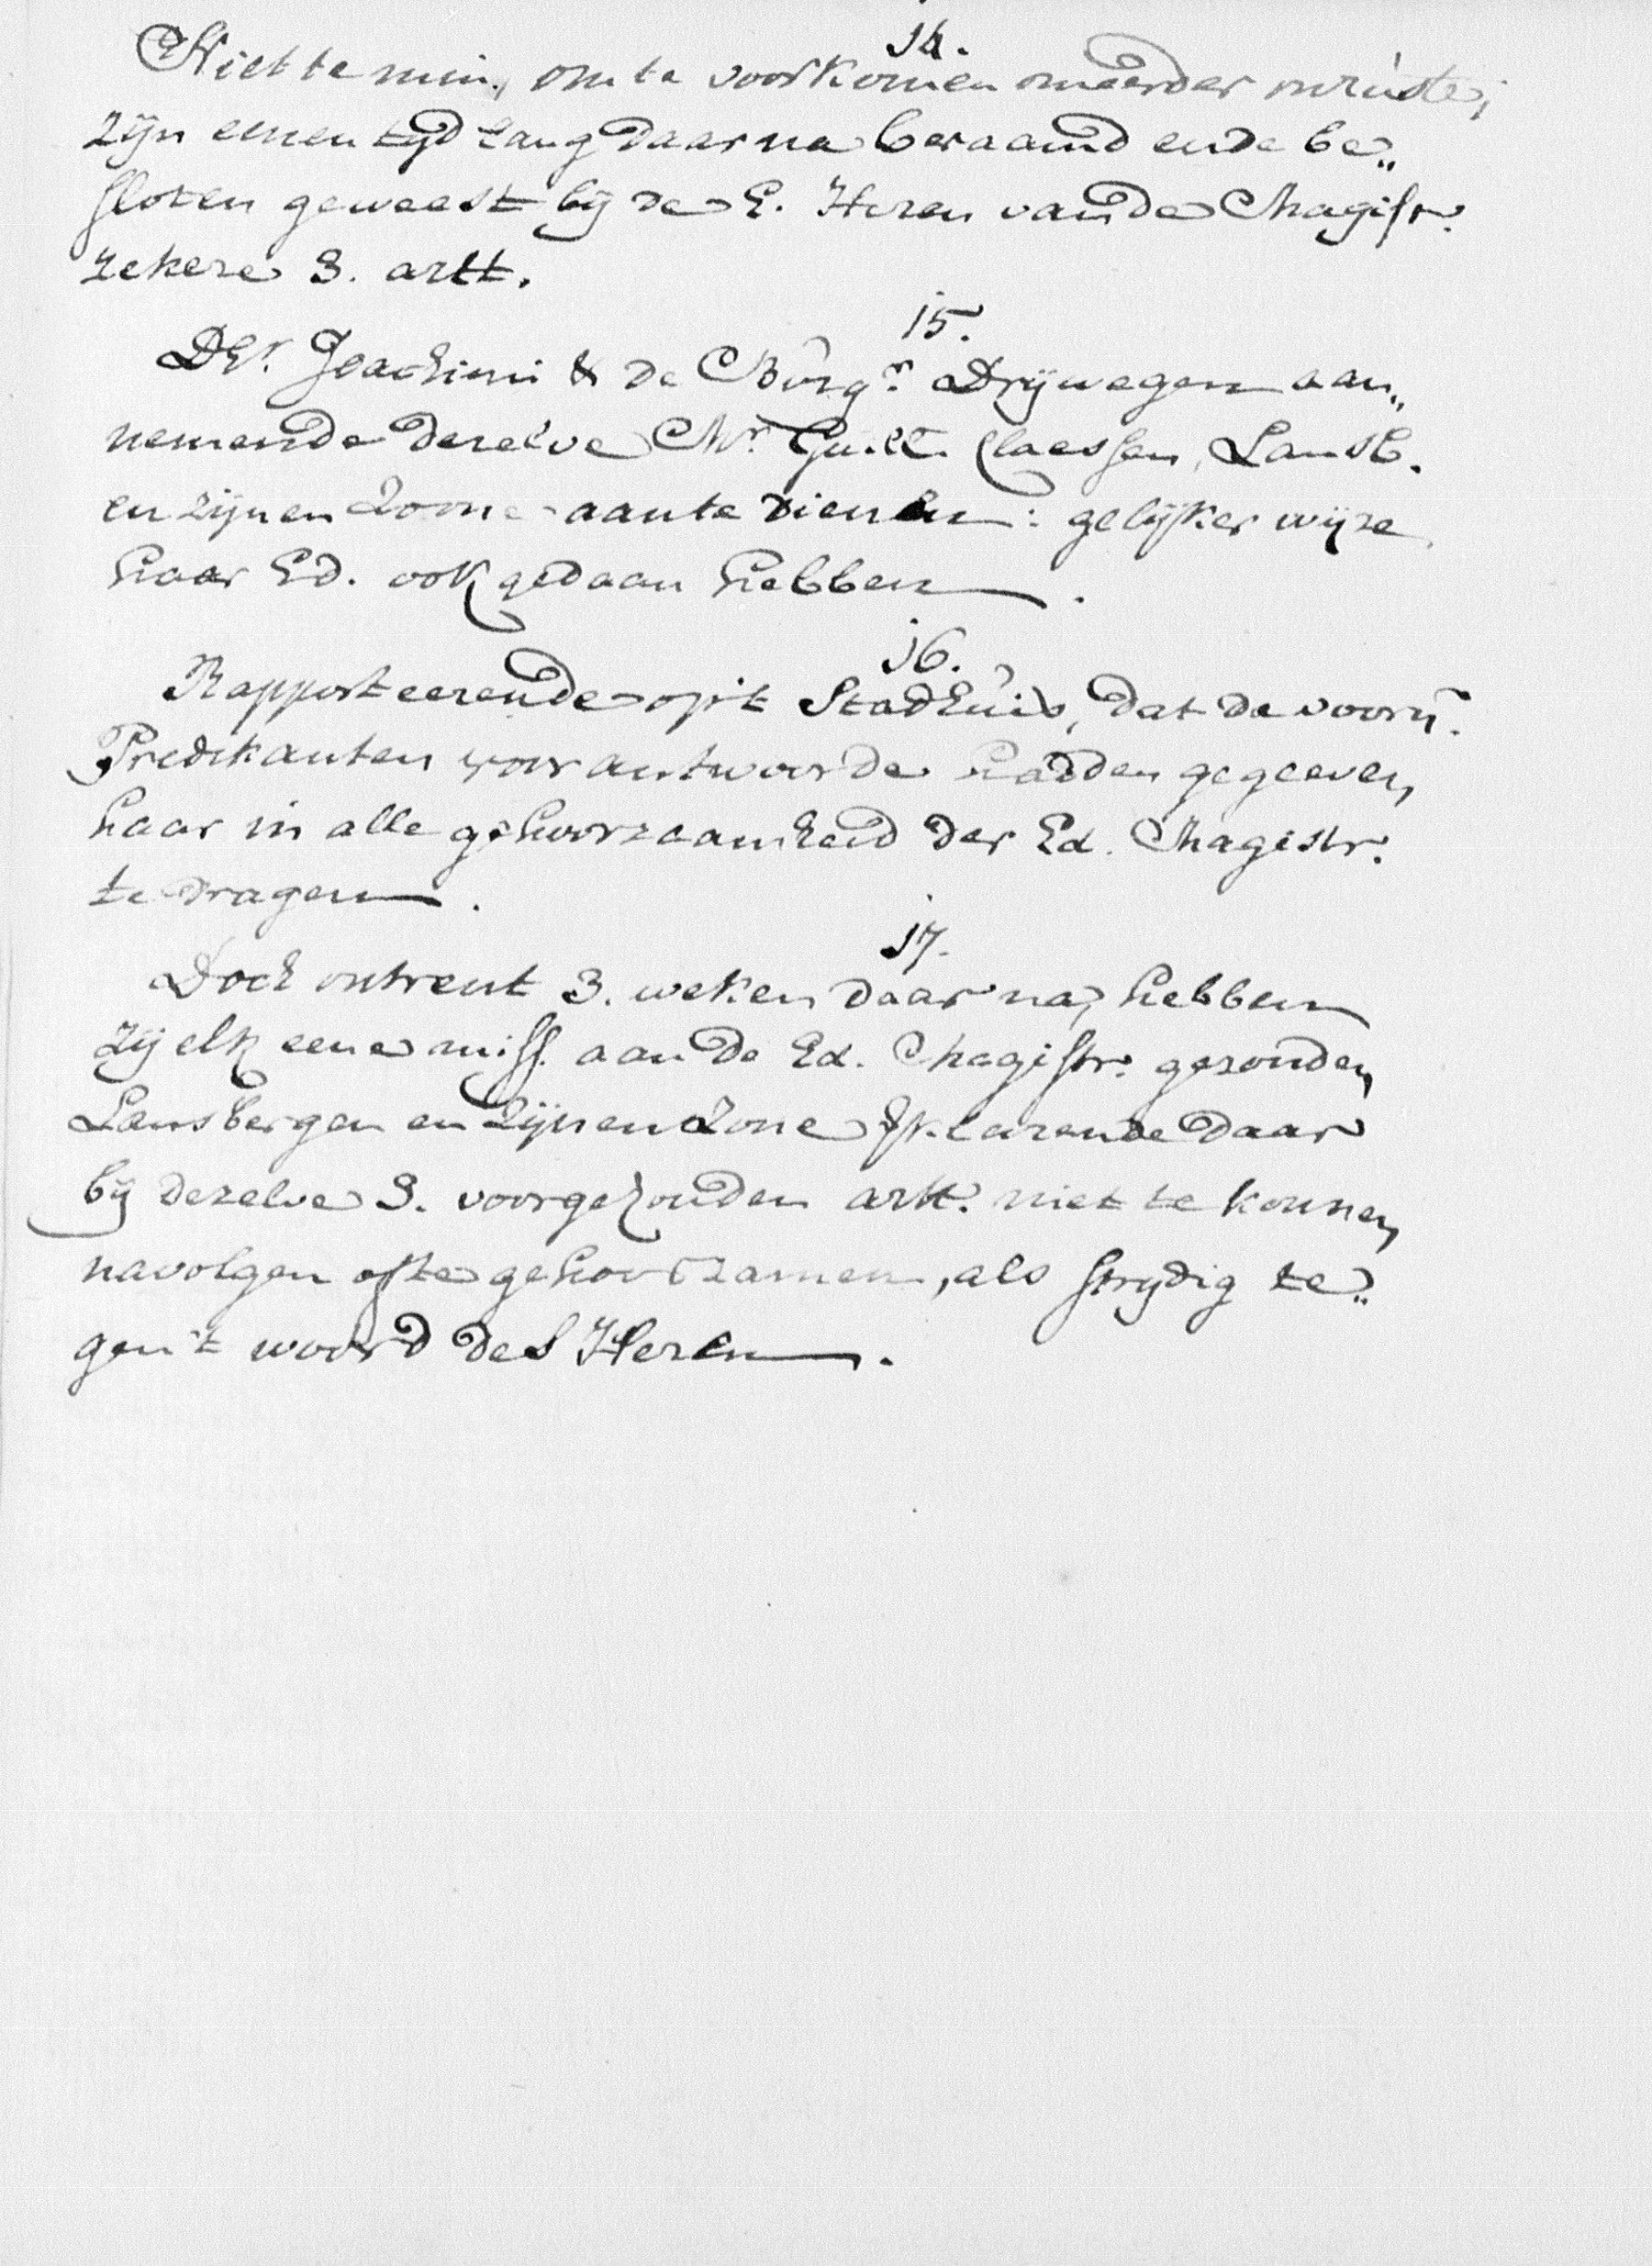 14.
Niet te min, om te voorkomen meerder onruste,
zijn eenen tijd lang daar na beraamd ende be„
sloten geweest bij de E. Heren van de Magistr.
zekere 3. artt.
15.
DHr. Joachimi & de Burgr. Drijwegen aan„
nemende dezelve Mr. Guill. Claessen, Lansb.
en zijnen zoone aan te dienen: gelijker wijze
haar Ed. ook gedaan hebben.
16.
Rapporteerende op 't Stadhuis, dat de voorn.
Predikanten voor antwoorde hadden gegeeven,
haar in alle gehoorzaamheid der Ed. Magistr.
te dragen.
17.
Doch ontrent 3. weken daar na, hebben
zij elk eene miss. aan de Ed. Magistr. gezonden,
Lansbergen en zijnen zone daar
bij dezelve 3. voorgezonden artt. niet te konnen
navolgen ofte gehoorzamen, als strijdig te„
gen 't woord des Heren.